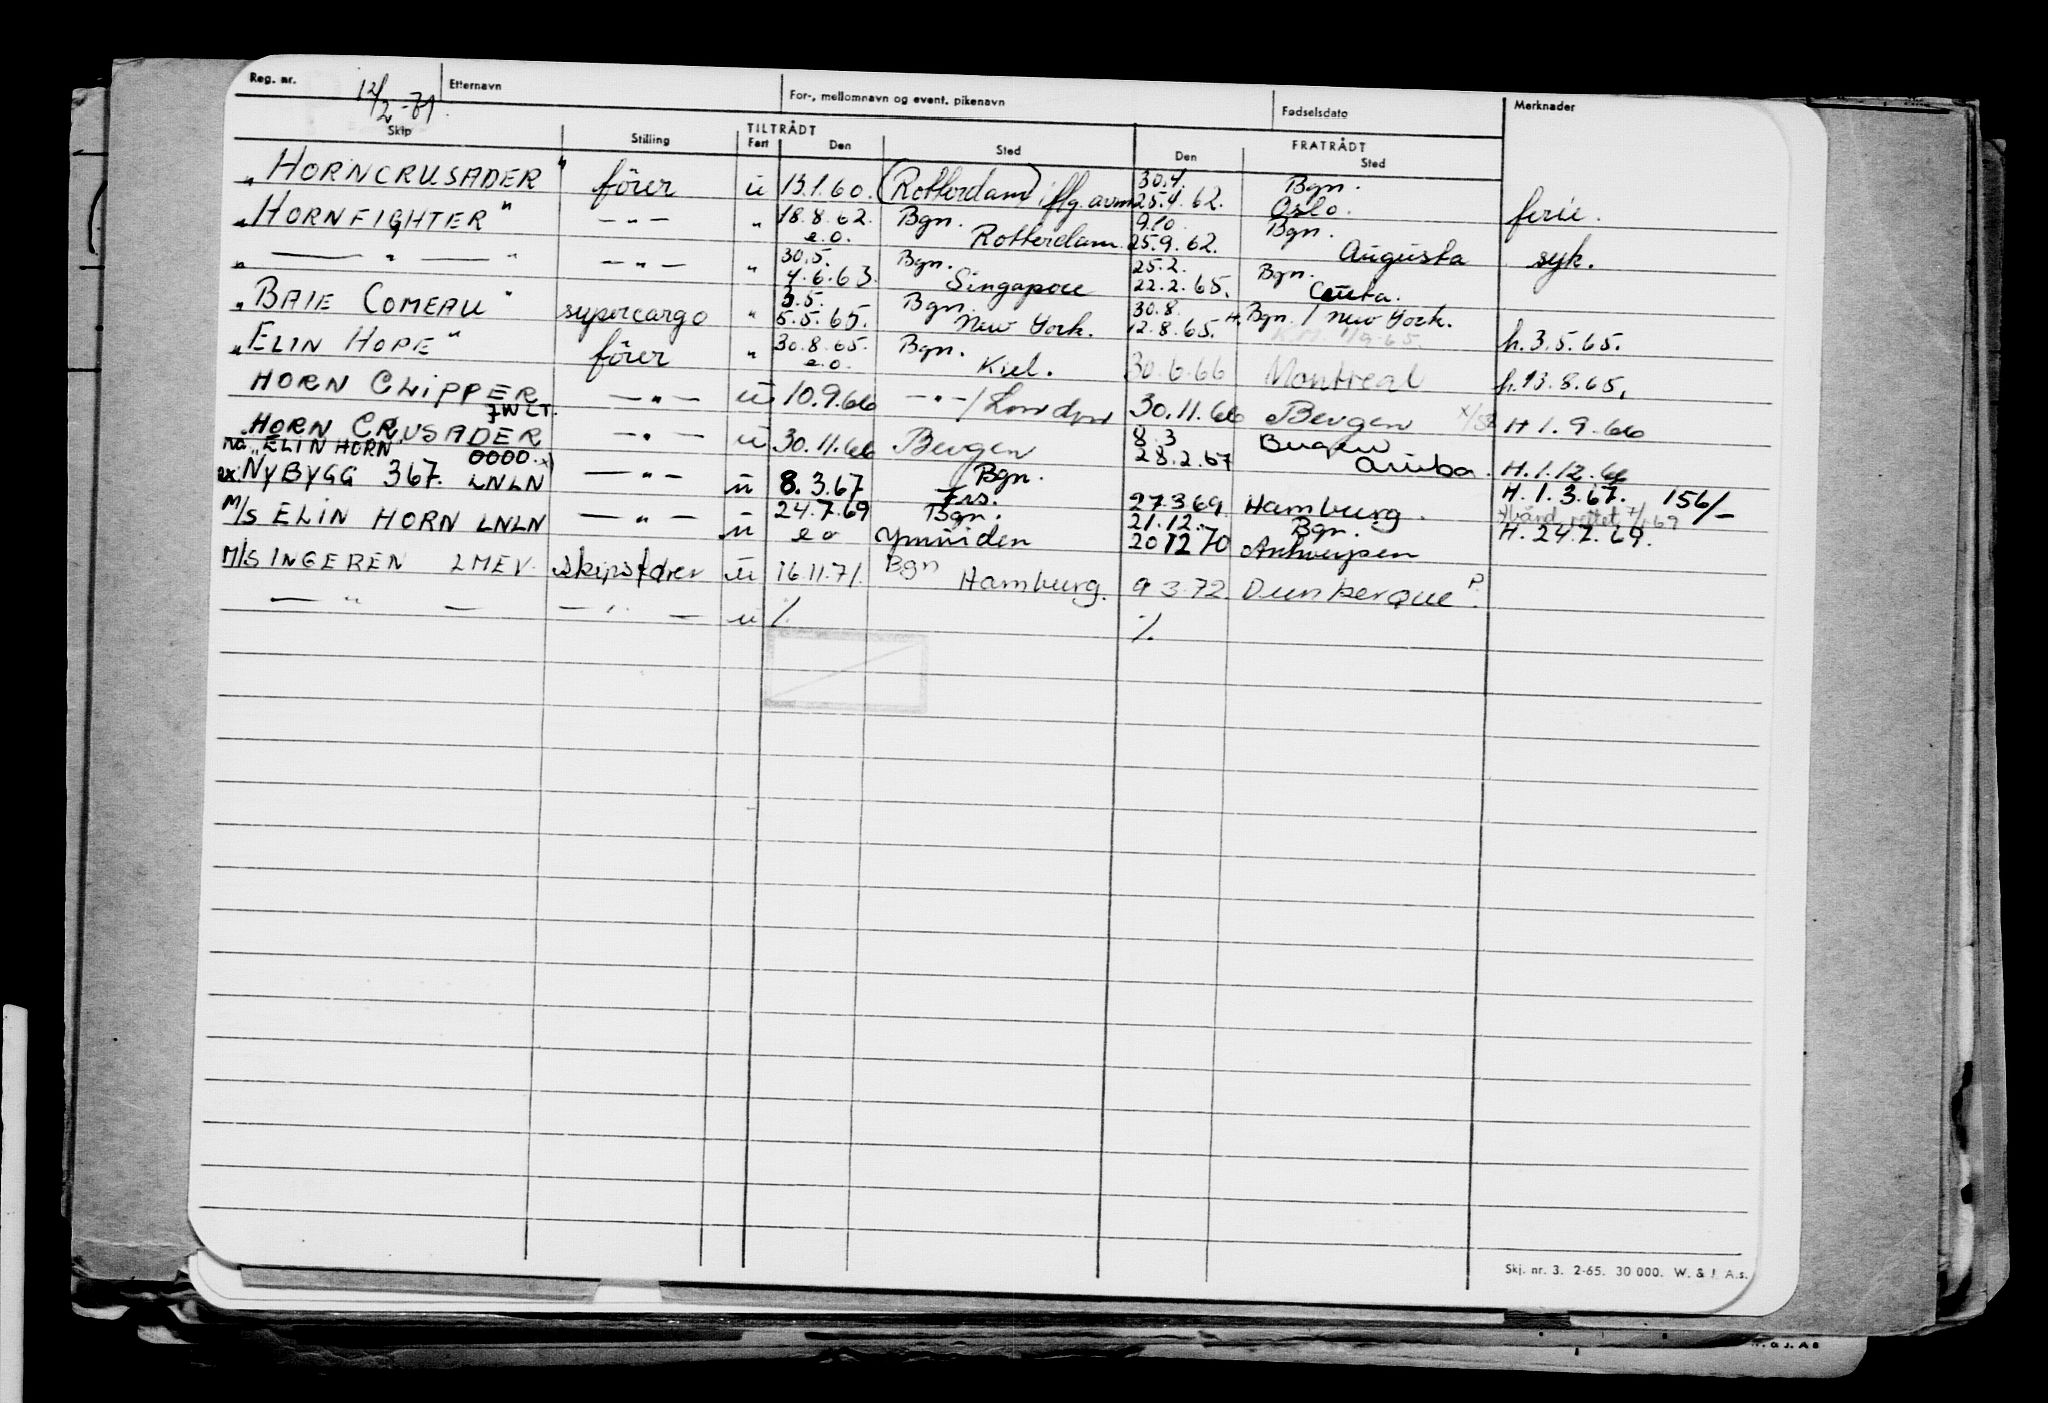 Reg. nr. 12/2-71 Etternavn For-, mellomnavn og event. pikenavn Fødselsdato Merknader
TILTRÅDT FRATRÅDT
Skip Stilling Fart Den Sted Den Sted
"HORNCRUSADER" förer ü 13.1.60. (Rotterdam) iflg. avm 30.4. 25.4.62. Bgn. Oslo. ferie.
"HORNFIGHTER" — " — " 18.8.62. e.o. Bgn. Rotterdam. 9.10. 25.9.62. Bgn. Augusta syk.
" — " — " — " — " 30.5. 4.6.63. Bgn. Singapore 25.2. 22.2.65. Bgn. Ceuta.
"BAIE COMEAU" supercargo " 3.5. 5.5.65. Bgn. New York. 30.8. 12.8.65. H. Bgn. / New York. h.3.5.65.
"ELIN HOPE" förer " 30.8.65. e.o. Bgn. Kiel. 30.6.66 Montreal h.13.8.65.
HORN CLIPPER — " — ü 10.9.66 — " — / London 30.11.66 Bergen H 1.9.66
HORN CRUSADER — " — ü 30.11.66 Bergen 8.3 28.2.67 Bergen Aruba. H.1.12.66
nå "ELIN HORN 0000. x)
ex. NYBYGG 367. LNLN — " — ü 8.3.67 Bgn. 27.3.69 Hamburg. H.1.3.67. 156/-
M/S ELIN HORN LNLN — " — ü 24.7.69 e o Bgn. Ymuiden 21.12. 20 12 70 Bgn. Antwerpen H. 24.7.69.
M/S INGEREN LMEV. skipsfører ü 16.11.71. Bgn Hamburg. 9 3.72 Dunkerque P.
— " — — " — ü % %
Skj. nr. 3. 2-65. 30 000. W. & J. A.s.